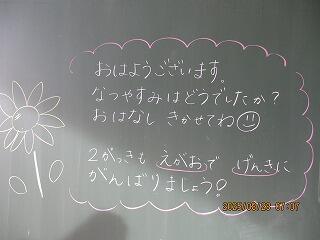 おはようございます。
なつやすみはどうでしたか?
おはなし きかせてね
2がっきも えがおで げんきに
がんばりましょう!